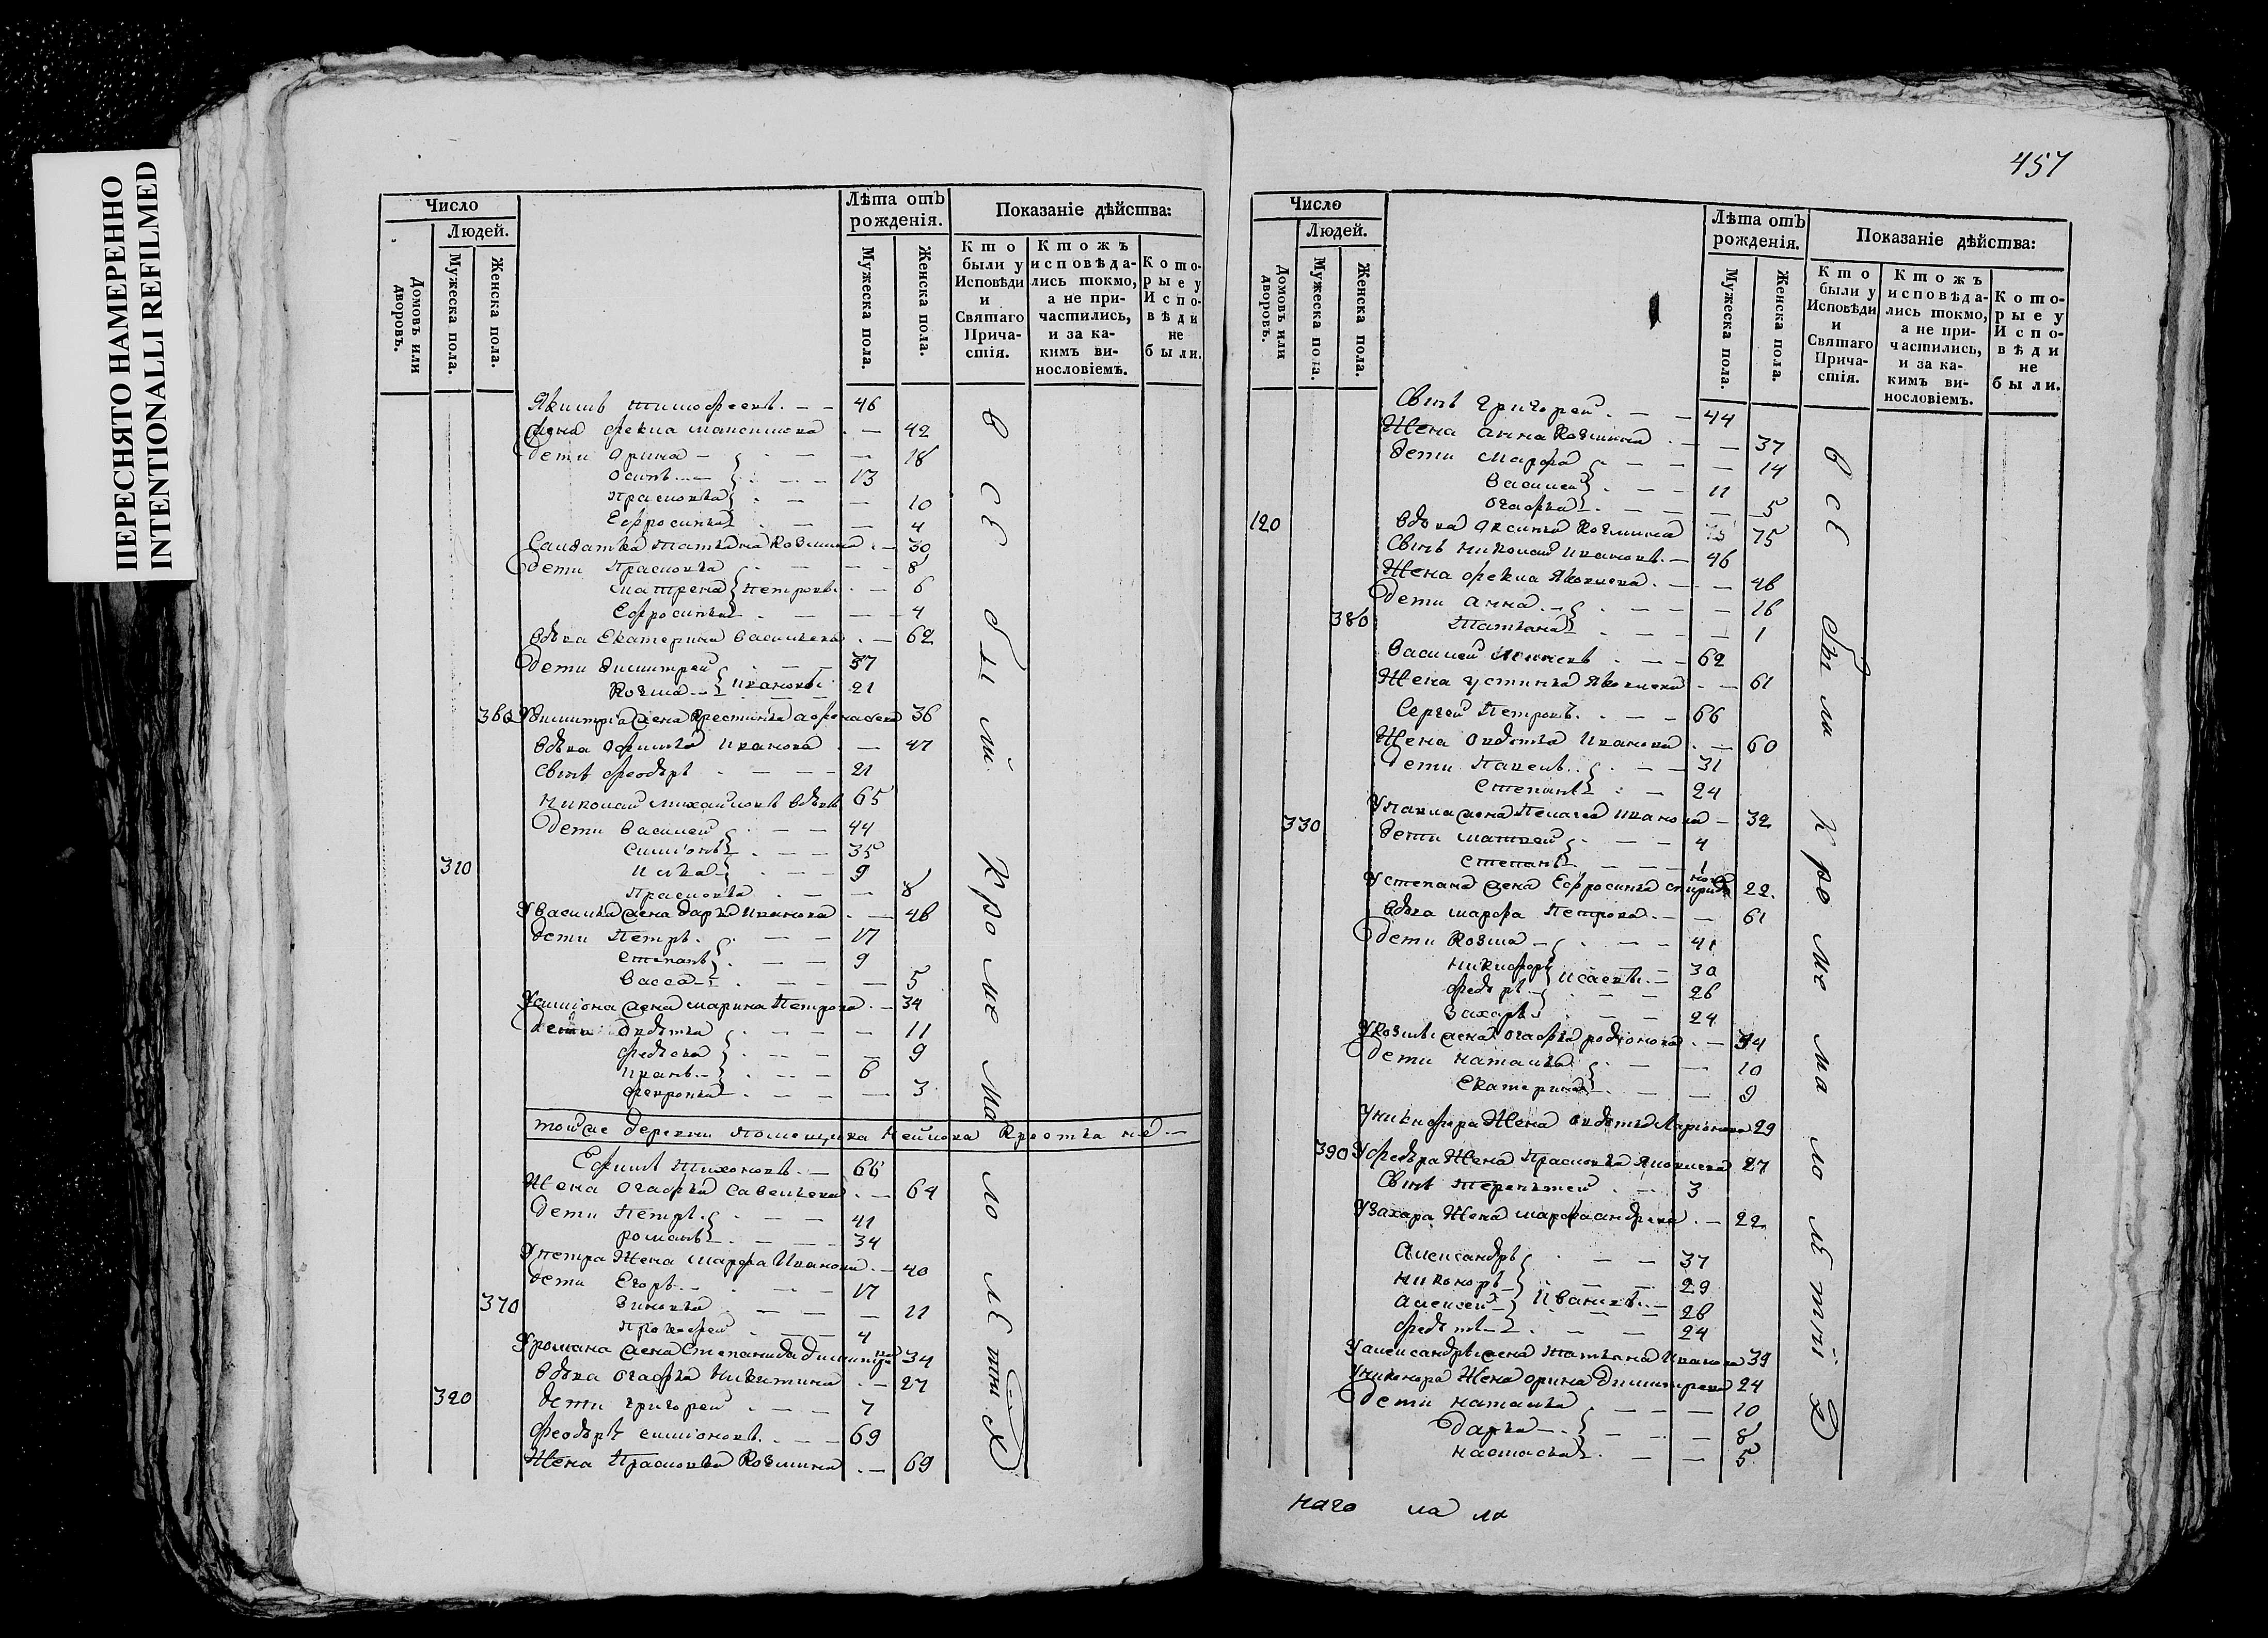 ПЕРЕСНЯТО НАМЕРЕННО
INTENTIONALLI REFILMED
Число
Людей.
Домовъ или дворовъ.
Мужеска пола.
Женска пола.
Лѣта отъ рожденія.
Мужеска пола.
Женска пола.
Показаніе дѣйства:
Кто были у Исповѣди и Святаго Причастія.
Ктожъ исповѣдались токмо, а не причастились, и за какимъ винословіемъ.
Которые у Исповѣди не были.
Якимъ Тимофеевъ 46
Жена Фекла Максимова 42
дети Арина 18
Осипъ 13
Прасковья 10
Ефросинья 4
Салдатка Татьяна Козмина 30
дети Прасковья 8
Матрена Петровы 6
Ефросинья 4
вдова Екатерина Васильева 62
дети Димитрей 37
Козма Ивановы 21
360 У Димитрия жена Крестинья Афонасьева 36
вдова Офимья Иванова 47
сынъ Феодоръ 21
Николай Михайловъ вдовъ 65
дети Василей 44
Симионъ 35
310 Илья 9
Прасковья 8
У Василья жена Дарья Иванова 46
дети Петръ 17
Степанъ 9
Васса 5
У Симиона жена Марина Петрова 34
дети Овдотья 11
Федосья 9
Иванъ 6
Феврония 3
тойже деревни помещика Кре
Ефимъ Тихоновъ 66
Жена Огафья Савельева 64
дети Петръ 41
Романъ 34
У Петра Жена Марфа Иванова 40
дети Егоръ 17
370 Зиновья 11
Прокофей 4
У Романа жена Степанида Димитрева 34
вдова Огафья Никитина 27
320 дети Григорей 7
Феодоръ Симионовъ 69
Жена Прасковья Козмина 69
все были кроме малолетныхъ
457
Число
Людей.
Домовъ или дворовъ.
Мужеска пола.
Женска пола.
Лѣта отъ рожденія.
Мужеска пола.
Женска пола.
Показаніе дѣйства:
Кто были у Исповѣди и Святаго Причастія.
Ктожъ исповѣдались токмо, а не причастились, и за какимъ винословіемъ.
Которые у Исповѣди не были.
Сынъ Григорей 44
Жена Анна Козмина 37
дети Марфа 14
Василей 11
Огафья 5
120 вдова Аксинья Козмина 75
Сынъ Николай Ивановъ 46
Жена Фекла Яковлева 46
дети Анна 16
380 Татьяна 1
Василей 62
Жена Устинья Яковлева 61
Сергей Петровъ 66
Жена Овдотья Иванова 60
дети Павелъ 31
Степанъ 24
330 У Павла жена Пелагея Иванова 32
дети Матвей 4
Степанъ 1
У Степана жена Ефросинья Спиридонова 22
вдова Марфа Петрова 61
дети Козма 41
Никифоръ Исаевы 30
Федоръ 26
Захаръ 24
У Козмы жена Огафья Родионова 44
дети Наталья 10
Екатерина 9
У Никифора Жена Овдотья Ларионова 29
390 У Федора Жена Прасковья Яковлева 27
Сынъ Терентей 3
У Захара Жена Марфа Андреева 22
Александръ 37
Никоноръ 29
Алексей Ивановы 26
Федотъ 24
У Александры жена Татьяна Иванова 39
У Никонора Жена Орина Димитрева 24
дети Наталья 10
Дарья 8
Настасья 5
все были кроме малолетныхъ